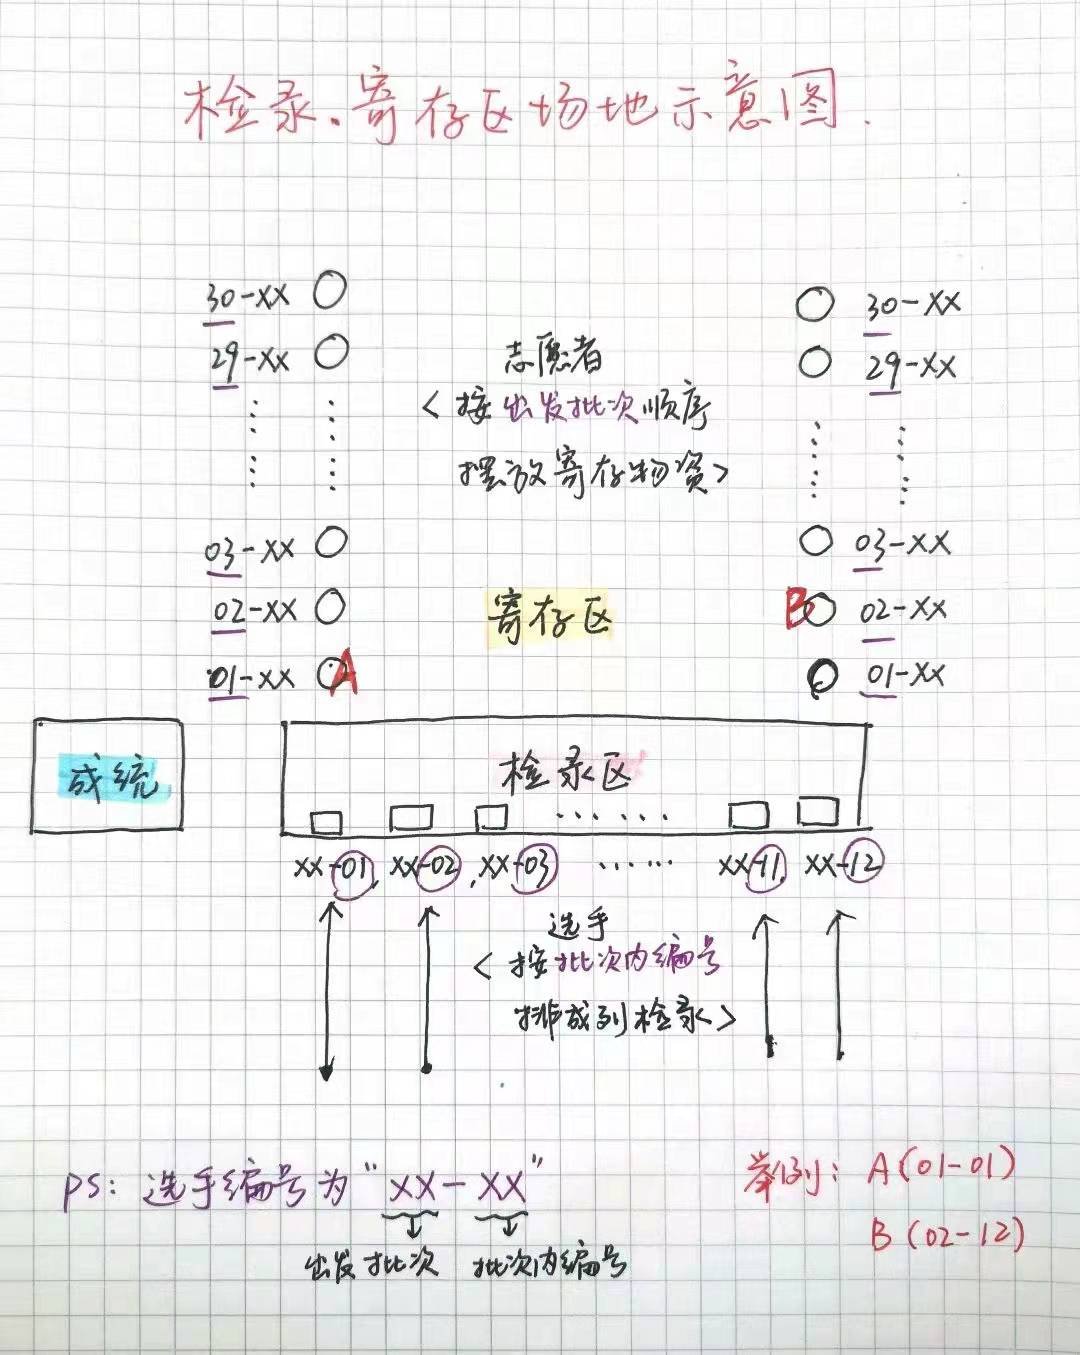 检录.寄存区场地示意图.
30-XX 30-XX
29-XX 29-XX
志愿者
<按出发批次顺序
摆放寄存物资>
03-XX 03-XX
02-XX 寄存区 B 02-XX
01-XX A 01-XX
成统 检录区
XX-01, XX-02, XX-03 ······ XX-11, XX-12
选手
<按批次内编号
排成列检录>
PS: 选手编号为"XX-XX"
出发批次 批次内编号
举例: A(01-01)
B(02-12)